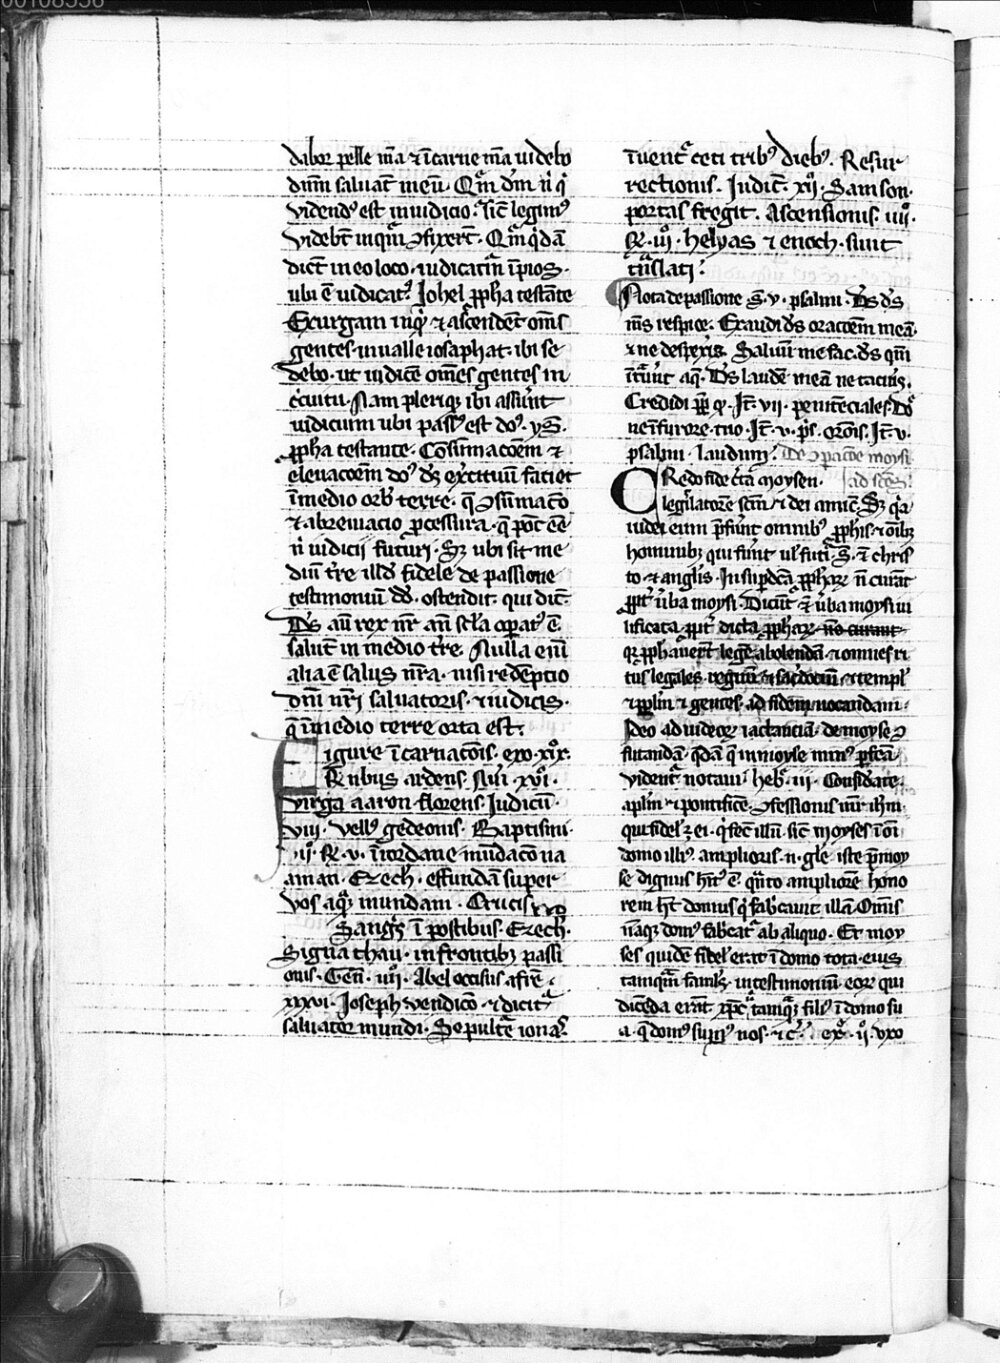 00108556
dabor pelle mā ⁊ ī carne mā videbo
dīm saluat̄ meū. Qm̄ dm̄ n̄ q̄
videnď est in iudicio. sic̄ legimꝰ
videbt̄ in quē ɔfixert̄. Qm̄ q̇dā
dict̄ in eo loco iudicatm̄ īpios.
ubi ē iudicatꝰ. Johel ꝓpha testante
Exurgam inq̇t ⁊ ascendēt om̄s
gentes in ualle iosaphat. ibi se
debo. ut iudicē om̄es gentes in
ccuitu. Nam plerique ibi assūt
iudicium ubi passꝰ est doꝰ. ys.
ꝓpha testante. Cōsūmacoēm ⁊
eleuacoēm doꝰ ds̄ excituū faciet
ī medio orbꝰ terre. q̄ ɔsūmaco
⁊ abreuiacio ꝓcessura. q̄ pot̄ eē
n̄ iudicii futuri. Sꝫ ubi sit me
diū tr̄e illď fidele de passione
testimoniū dď. ostendit. qui dic̄.
Ds̄ aū rex nr̄ an̄ scl̄a oꝑatꝰ ē
salut̄ in medio tr̄e. Nulla eni
alia ē salus nr̄a. nisi redēptio
dn̄i nr̄i saluatoris. ⁊ iudicis.
q̄ ī medio terre orta est.
Figure ī carnacōis. exo. xix.
Rubus ardens. Nūi xvi.
virga aaron florens. Judicū.
viii. vellꝰ gedeonis. Baptismi.
iiii. R. v. ī iordane mūdaco na
aman. Ezech. effundā super
vos aqꝫ mundam. Crucis
Sangꝰs ī postibus. Ezech.
Signa thau. in frontibꝫ passi
onis. Gen̄. iiii. Abel occisus a fre
xxxvi. Joseph vendicō ⁊ dicitr̄
saluator mundi. Sepultē ionas.
īuentr̄ ceti tribꝰ diebꝰ. Resur
rectionis. Judic̄. xvi. Samson.
portas fregit. Ascensionis. iiii.
R. ii. helyas ⁊ enoch. sunt
trāslati.
Nota de passione s. v. psalmi. Ds̄ ds̄
ms̄ respice. Exaudi ds̄ oracoēm meā.
⁊ ne despexis. Saluū me fac ds̄ qm̄
ītraūt aq̄. Ds̄ laudē meā ne tacuis.
Credidi ꝓpt̄ q. It̄. vii. penitenciales. Do
ne in furore tuo. It̄. v. ps̄. orōis. It̄. v.
psalmi. laudum. De ɔparacōe moysi
Credo fide cc̄a moysen. ad
legislatorē scm̄ ⁊ dei amic̄. Sꝫ qa
iudei eum p̄ferūt omnibꝰ ꝓphis. ⁊ oīb
hominibꝫ qui fūnt ul̄ futi s. ⁊ chris
to ⁊ angl̄is. In suꝑ dicta ꝓphaꝝ n̄ curāt
ꝓpt̄ ūba moysi. Dicūt ūba moysi vi
lificata ꝓpt̄ dicta ꝓphaꝝ no curant
q̄ ꝓphauert̄ legē abolendā ⁊ omnes ri
tus legales. regnū ⁊ sacdociū ⁊ templ̄
⁊ ppl̄m ⁊ gentes ad fidem uocandam.
Ideo ad iudeoꝝ iactanciā. de moyse ɔ
futandā. q̄dā q̄ in moyse minꝰ ꝑfca
vident̄ notaui. heb̄. iii. Considate.
apl̄m ⁊ pontificē ɔfessionis nr̄e ihm̄.
qui fidel̄ ē ei. q̇ fec̄ illū. sic̄ moyses ī oi
domo illiꝰ. amplioris. n. gl̄e iste p̄ moy
se dignus hītꝰ ē. q̄nto ampliorē hono
rem ht̄ domus q̇ fabcauit illā. Omīs
nāqꝫ domꝰ fabcat̄ ab aliquo. Et moy
ses quidē fidel̄ erat ī domo tota eius
tamqm̄ famlꝰs in testimoniū eoꝝ qui
dicēda erāt. xp̄c̄ tamqꝫ filiꝰ ī domo su
a. q̄ domꝰ sumꝰ nos. ⁊c̄. ex̄. ii. vxo